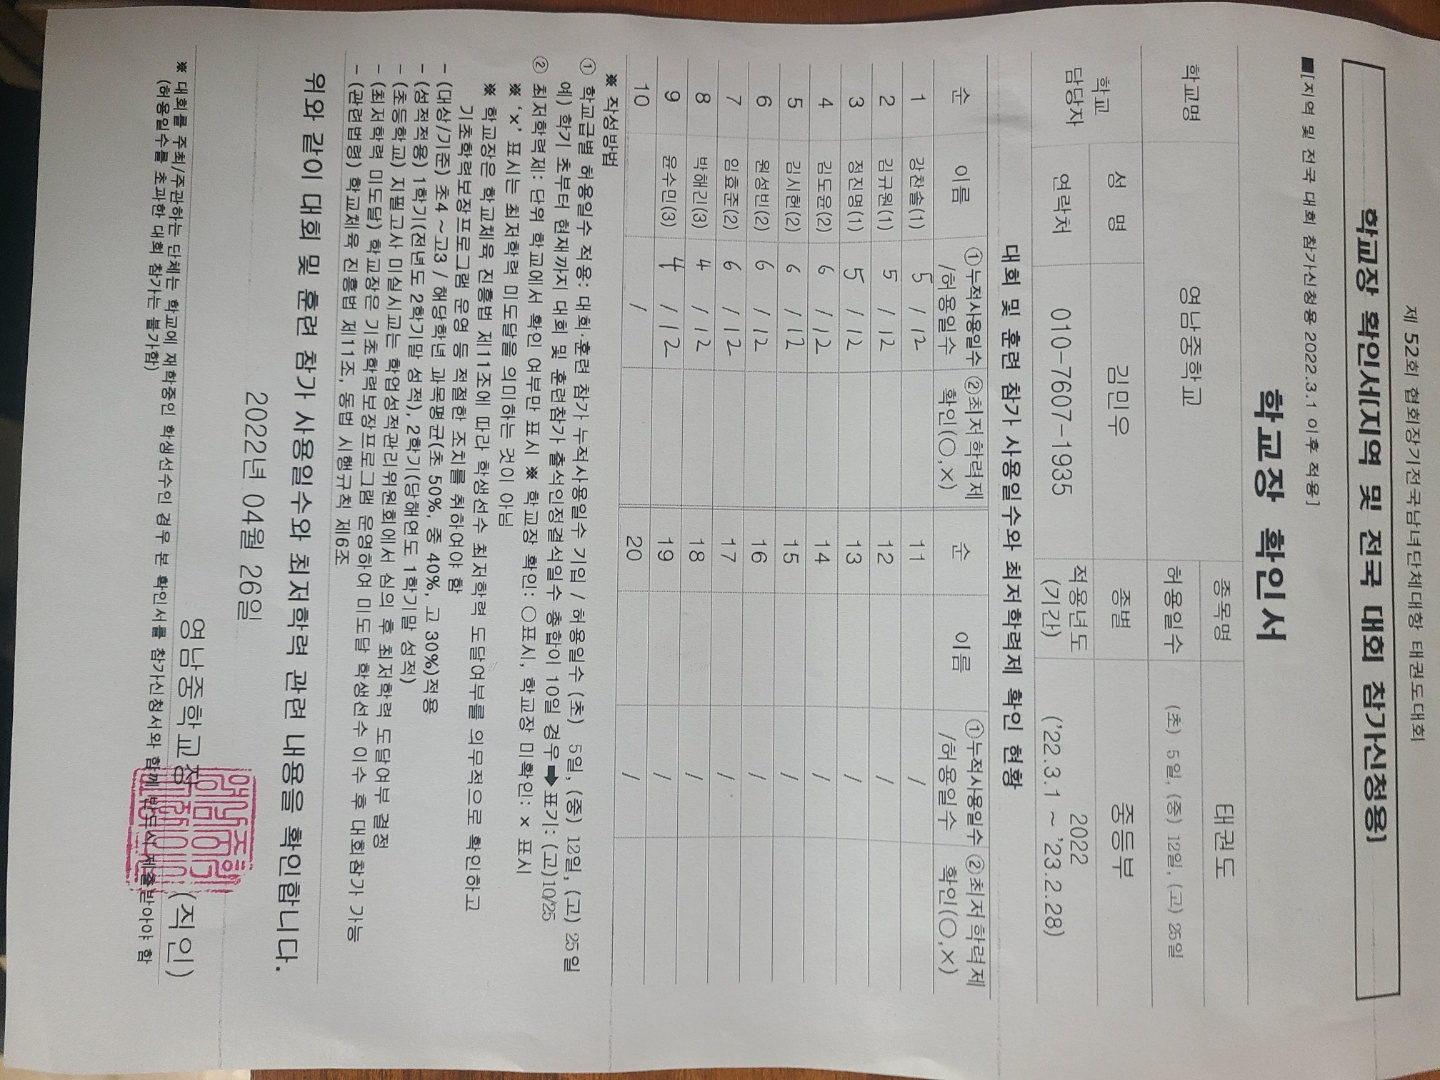 제 52회 협회장기전국남녀단체대항 태권도대회
학교장 확인서[지역 및 전국 대회 참가신청용]
■[지역 및 전국 대회 참가신청용 2022.3.1 이후 적용]
학교장 확인서
학교명 영남중학교 종목명 태권도
허용일수 (초) 5일, (중) 12일, (고) 25일
학교 담당자 성 명 김민우 종별 중등부
연락처 010-7607-1935 적용년도 (기간) 2022 ('22.3.1 ~ '23.2.28)
대회 및 훈련 참가 사용일수와 최저학력제 확인 현황
순 이름 ①누적사용일수 /허용일수 ②최저학력제 확인(○,×) 순 이름 ①누적사용일수 /허용일수 ②최저학력제 확인(○,×)
1 강찬솔(1) 5 / 12 11 /
2 김규원(1) 5 / 12 12 /
3 정진명(1) 5 / 12 13 /
4 김도윤(2) 6 / 12 14 /
5 김시헌(2) 6 / 12 15 /
6 원성빈(2) 6 / 12 16 /
7 임효준(2) 6 / 12 17 /
8 박해긴(3) 4 / 12 18 /
9 윤수민(3) 4 / 12 19 /
10 / 20 /
※ 작성방법
① 학교급별 허용일수 적용: 대회·훈련 참가 누적사용일수 기입 / 허용일수 (초) 5일, (중) 12일, (고) 25일
예) 학기 초부터 현재까지 대회 및 훈련참가 출석인정결석일수 총합이 10일 경우 ➡ 표기: (고)10/25
② 최저학력제: 단위 학교에서 확인 여부만 표시 ※ 학교장 확인: ○표시, 학교장 미확인: × 표시
※ '×' 표시는 최저학력 미도달을 의미하는 것이 아님
※ 학교장은 학교체육 진흥법 제11조에 따라 학생선수 최저학력 도달여부를 의무적으로 확인하고
기초학력보장프로그램 운영 등 적절한 조치를 취하여야 함
- (대상/기준) 초4 ~ 고3 / 해당학년 과목평균(초 50%, 중 40%, 고 30%)적용
- (성적적용) 1학기(전년도 2학기말 성적), 2학기(당해연도 1학기말 성적)
- (초등학교) 지필고사 미실시교는 학업성적관리위원회에서 심의 후 최저학력 도달여부 결정
- (최저학력 미도달) 학교장은 기초학력보장프로그램 운영하여 미도달 학생선수 이수 후 대회참가 가능
- (관련법령) 학교체육 진흥법 제11조, 동법 시행규칙 제6조
위와 같이 대회 및 훈련 참가 사용일수와 최저학력 관련 내용을 확인합니다.
2022년 04월 26일
영남중학교장 (직인)
※ 대회를 주최/주관하는 단체는 학교에 재학중인 학생선수인 경우 본 확인서를 참가신청서와 함께 반드시 제출받아야 함
(허용일수를 초과한 대회 참가는 불가함)